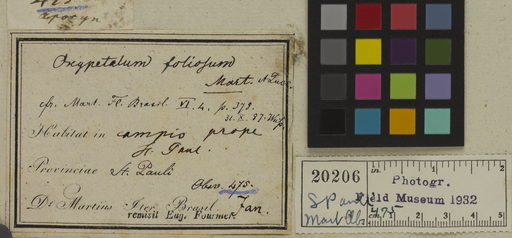 475
Apocyn
Oxypetalum foliosum
Mart. & Zucc.
cfr. Mart. Fl. Brasil VI. 4. p. 373.
31. 8. 87.
Habitat in campis prope
St. Paul.
Provinciae St. Pauli
Obs. 475.
De Martius Iter Brasil. Jan.
remisit Eug. Fournier
20206
Photogr.
Field Museum 1932
S Paul
Mart Obs 475
in. 1 2
cm. 1 5